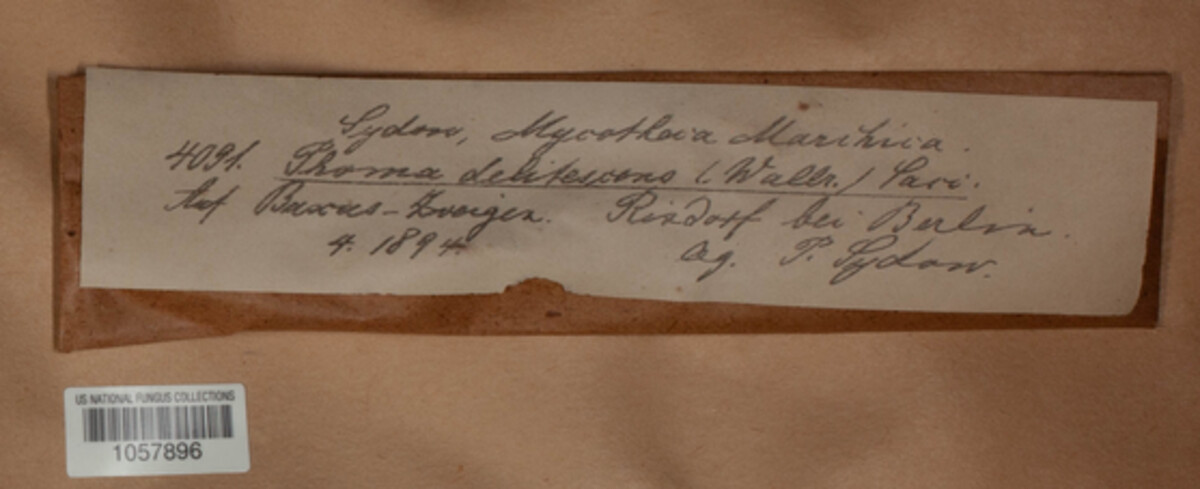 Sydow, Mycotheca Marchica.
4091. Phoma delitescens (Wallr.) Sacc.
Auf Buxus-Zweigen. Rixdorf bei Berlin.
4. 1894. leg. P. Sydow.
US NATIONAL FUNGUS COLLECTIONS
1057896